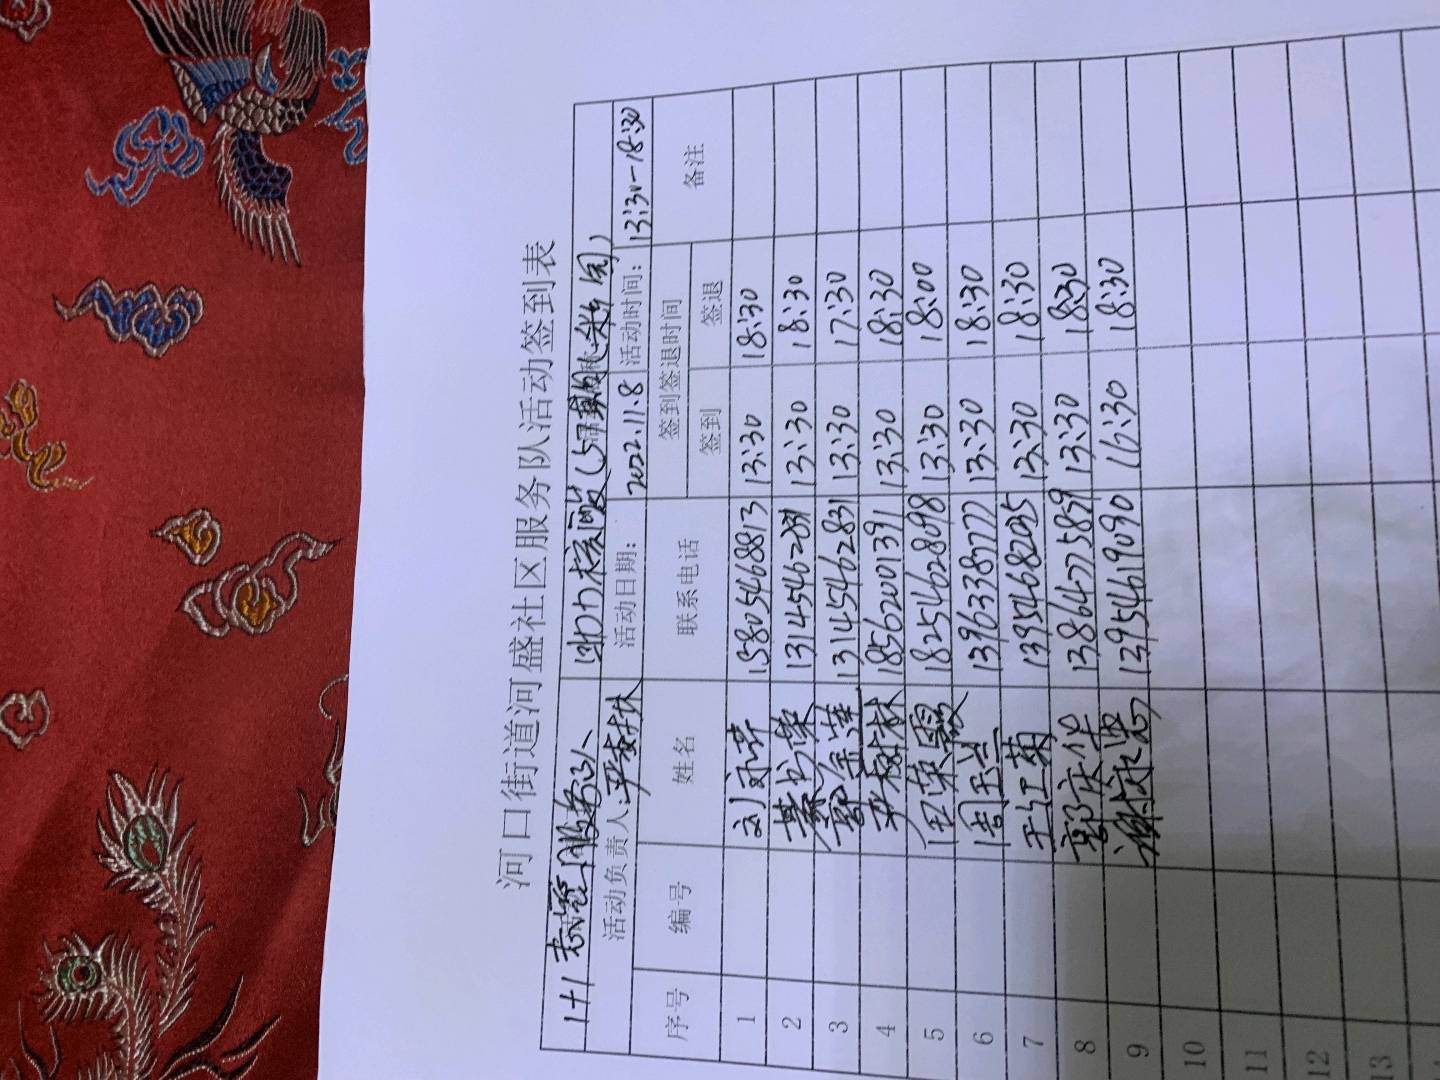 河口街道河盛社区服务队活动签到表
1+1志愿服务队 协力核酸
活动负责人: 活动日期: 2022.11.8 活动时间: 13:30-18:30
序号 编号 姓名 联系电话 签到签退时间 备注
签到 签退
1 15805468813 13:30 18:30
2 13145462831 13:30 18:30
3 13145462831 13:30 17:30
4 尹树林 18562001391 13:30 18:30
5 田荣霞 18254628098 13:30 18:00
6 周玉兰 13963387777 13:30 18:30
7 王红菊 13954682035 13:30 18:30
8 郭庆华 13864775859 13:30 18:30
9 13954619090 16:30 18:30
10
11
12
13